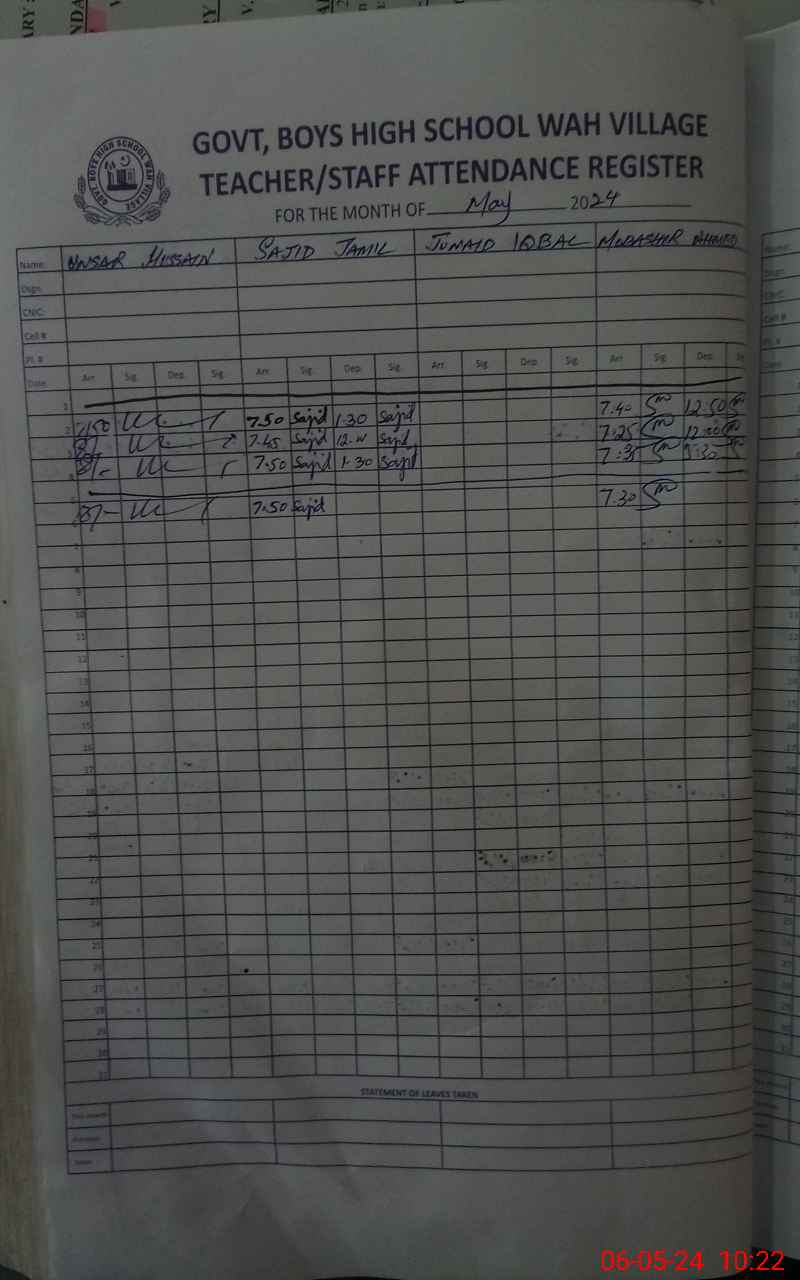 GOVT, BOYS HIGH SCHOOL WAH VILLAGE
TEACHER/STAFF ATTENDANCE REGISTER
GOVT. BOYS HIGH SCHOOL WAH VILLAGE
FOR THE MONTH OF May 2024
Name: UNSAR HUSSAIN SAJID JAMIL JUNAID IQBAL MUDASHIR AHMED
Dsgn:
CNIC:
Cell #
Pl. #
Date Arr. Sig. Dep. Sig. Arr. Sig. Dep. Sig. Arr. Sig. Dep. Sig. Arr. Sig. Dep.
1
2 7.50 7.50 Sajid 1.30 Sajid 7.40 12.50
3 8/- 7.45 Sajid Sajid 7:25
4 8/- 7.50 Sajid 1.30 Sajid 7:35
5
6 8/- 7.50 Sajid 7.30
7
8
9
10
11
12
13
14
15
16
17
18
19
20
21
22
23
24
25
26
27
28
29
30
31
STATEMENT OF LEAVES TAKEN
This Month
06-05-24 10:22